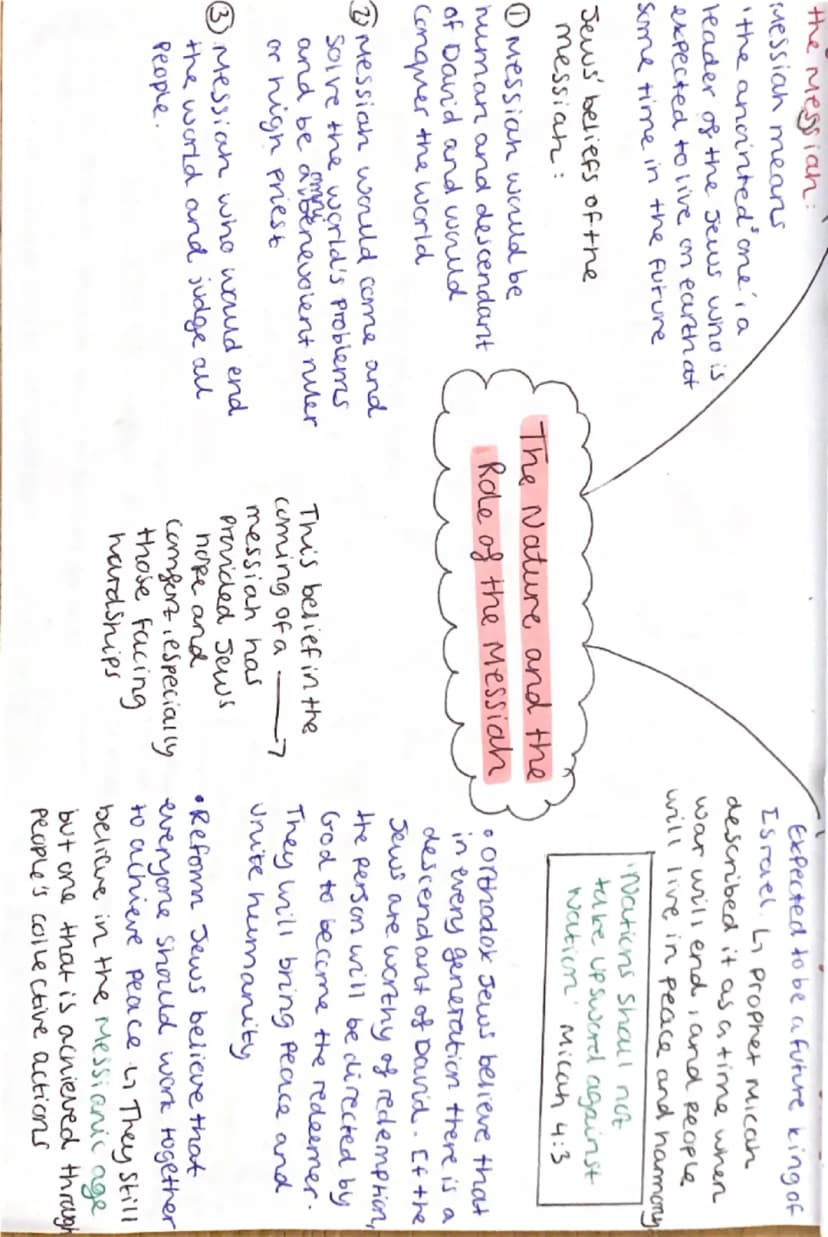 the Messiah:
Messiah means
'the anointed one', a
leader of the Jews who is
expected to live on earth at
some time in the future
Jews' beliefs of the
messiah:
① Messiah would be
human and descendant
of David and would
conquer the world
② Messiah would come and
solve the world's problems
and be a omnibenevolent ruler
or high priest
③ Messiah who would end
the world and judge all
people.
The Nature and the
Role of the Messiah
This belief in the
coming of a →
messiah has
provided Jews
hope and
comfort, especially
those facing
hardships
Expected to be a future king of
Israel. ↳ Prophet Micah
described it as a time when
war will end, and people
will live in peace and harmony
'Nations shall not
take up sword against
Nation' Micah 4:3
• Orthodox Jews believe that
in every generation there is a
descendant of David. If the
Jews are worthy of redemption,
the person will be directed by
God to become the redeemer.
They will bring peace and
unite humanity
• Reform Jews believe that
everyone should work together
to achieve peace ↳ They still
believe in the Messianic age
but one that is achieved through
people's collective actions